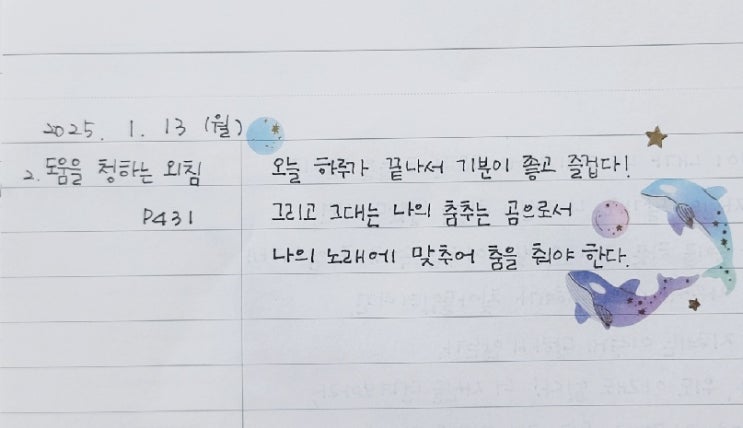 2025. 1. 13 (월)
2. 도움을 청하는 외침
P431
오늘 하루가 끝나서 기분이 좋고 즐겁다!
그리고 그대는 나의 춤추는 곰으로서
나의 노래에 맞추어 춤을 춰야 한다.